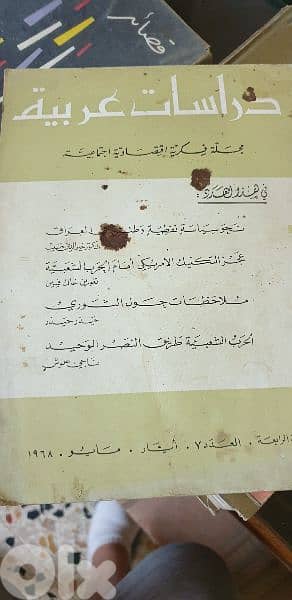 قصائد
دراسات عربية
مجلة فكرية اقتصادية اجتماعية
في هذا العدد :
نحو سياسة نفطية وطنية العراق
عجز التكتيك الأمريكي أمام الحرب الشعبية
ملاحظات حول الثوري
حيدر حيدر
الحرب الشعبية طريق النصر الوحيد
ناجي علوش
الرابعة . العدد ٧ . أيار . مايو . ١٩٦٨
olx